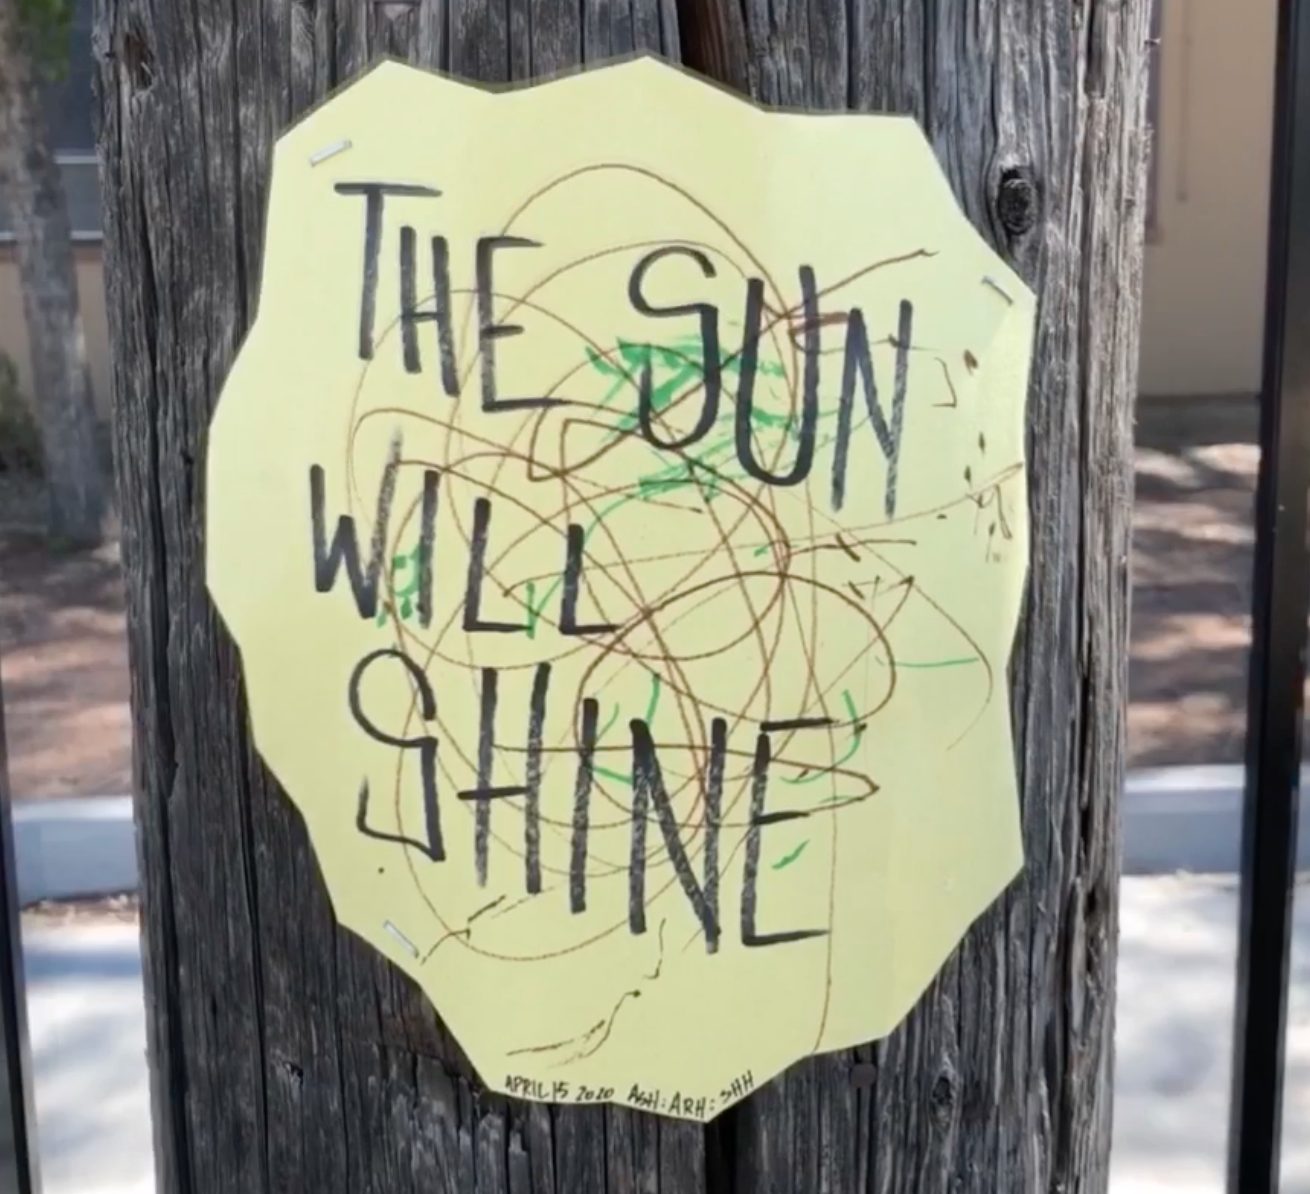 THE SUN
WILL
SHINE
APRIL 15 2020 ASH: ARH: SHH